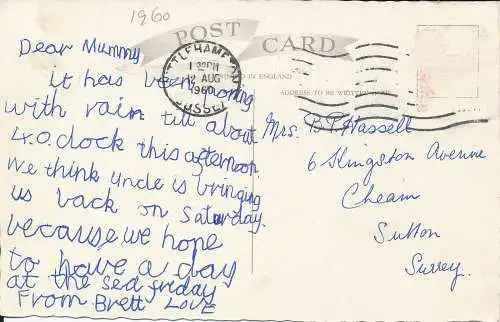 1960
POST CARD
LITTLEHAMPTON
1 30PM
12 AUG
1960
SUSSEX
PRINTED IN ENGLAND
ADDRESS TO BE WRITTEN
Dear Mummy
it has been
with rain till about
4.O.clock this afternoon
We think uncle is bringing
us back on Saturday.
because we hope
to have a day
at the sea friday
From Brett LOVE
Mrs. B. P. Hassell
6 Kingston Avenue
Cheam
Sutton
Surrey.